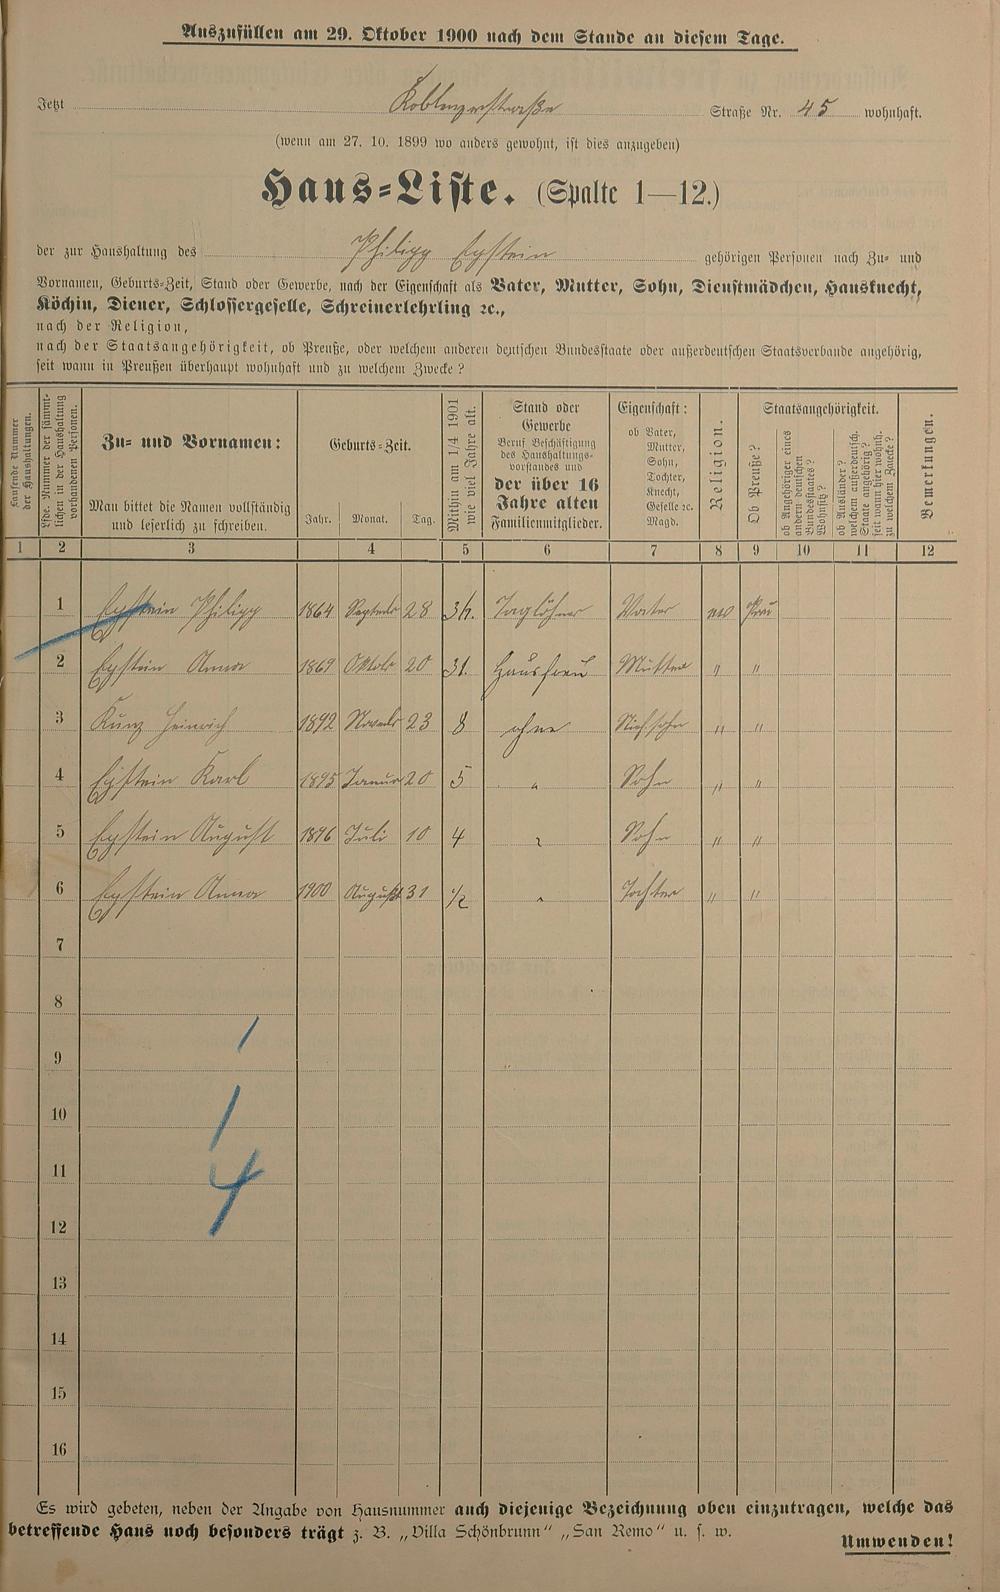 Auszufüllen am 29. Oktober 1900 nach dem Stande an diesem Tage.
Jetzt Koblenzerstraße Straße Nr. 45 wohnhaft.
(wenn am 27. 10. 1899 wo anders gewohnt, ist dies anzugeben)
Haus-Liste. (Spalte 1—12.)
der zur Haushaltung des Philipp Epstein gehörigen Personen nach Zu- und
Vornamen, Geburts-Zeit, Stand oder Gewerbe, nach der Eigenschaft als Vater, Mutter, Sohn, Dienstmädchen, Hausknecht,
Köchin, Diener, Schlossergeselle, Schreinerlehrling ꝛc.,
nach der Religion,
nach der Staatsangehörigkeit, ob Preuße, oder welchem anderen deutschen Bundesstaate oder außerdeutschen Staatsverbande angehörig,
seit wann in Preußen überhaupt wohnhaft und zu welchem Zwecke?
Laufende Nummer
der Haushaltungen.
Lfde. Nummer der sämmt-
lichen in der Haushaltung
vorhandenen Personen.
Zu- und Vornamen:
Man bittet die Namen vollständig
und leserlich zu schreiben.
Geburts-Zeit.
Jahr. Monat. Tag.
Mithin am 1/4 1901
wie viel Jahre alt.
Stand oder
Gewerbe
Beruf Beschäftigung
des Haushaltungs-
vorstandes und
der über 16
Jahre alten
Familienmitglieder.
Eigenschaft:
ob Vater,
Mutter,
Sohn,
Tochter,
Knecht,
Geselle ꝛc.
Magd.
Religion.
Staatsangehörigkeit.
Ob Preuße?
ob Angehöriger eines
andern deutschen
Bundesstaates?
Wohnsitz?
ob Ausländer?
welchem außerdeutsch.
Staate angehörig?
seit wann hier wohnh.
zu welchem Zwecke?
Bemerkungen.
1 2 3 4 5 6 7 8 9 10 11 12
1 Epstein Philipp 1864 Septebr 28 Taglöhner Vater
2 Epstein Anna 1869 Oktobr 20 31. Hausfrau Mutter " "
3 Kunz Heinrich 1892 Novebr 23 8 ohne Stiefsohn " "
4 Epstein Karl 1895 Januar 20 5 " Sohn " "
5 Epstein August 1896 Juli 10 4 " Sohn " "
6 Epstein Anna 1900 August 31 1/2 " Tochter " "
7
8
9
10
11
12
13
14
15
16
1
1
4
Es wird gebeten, neben der Angabe von Hausnummer auch diejenige Bezeichnung oben einzutragen, welche das
betreffende Haus noch besonders trägt z. B. „Villa Schönbrunn“ „San Remo“ u. s. w.
Umwenden!